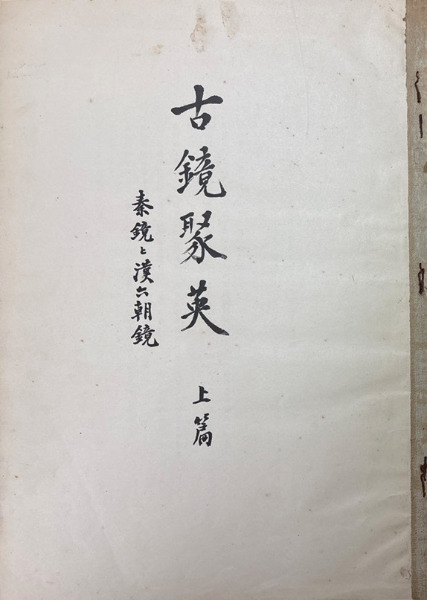 古鏡聚英 上篇
秦鏡と漢六朝鏡